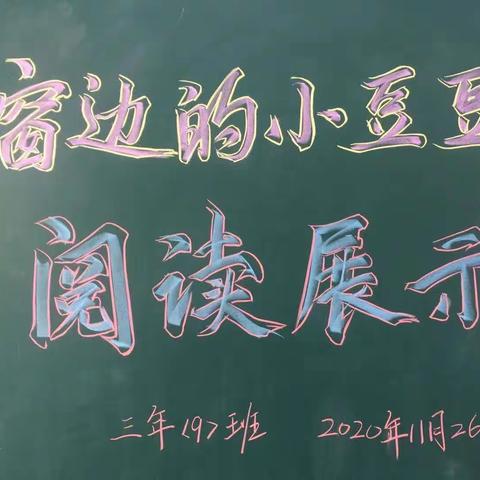 窗边的小豆豆
阅读展示
三年<9>班 2020年11月26